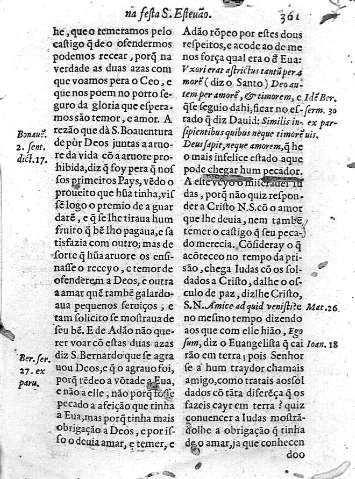 na festa S. Esteuão. 361
he, que o temeramos pelo
castigo q̃ de o ofendermos
podemos recear, porq̃ na
verdade as duas azas com
que voamos pera o Ceo, e
que nos poem no porto se-
guro da gloria que espera-
mos são temor, e amor. A
rezão que dà S. Boauentura
de pòr Deos juntas a aruo-
re da vida cõ a aruore pro-
hibida, diz q̃ foy pera q̃ nos
sos primeiros Pays, vẽdo o
proueito que hũa tinha, vis
sẽ logo o premio de a guar
darẽ, e q̃ se lhe tiraua hum
fruito q̃ bẽ lho pagaua, e sa
tisfazia com outro; mas de
sorte q̃ hũa aruore os ensi-
nasse o receyo, e temor de
ofenderem a Deos, e outra
a amar quẽ tambẽ galardo-
aua pequenos seruiços, e
tam solicito se mostraua de
seu bẽ. E de Adão não quer
rer voar cõ estas duas azas
diz S. Bernardo que se agra
uou Deos, e q̃ o agrauo foi,
porq̃ rẽdeo a võtade a Eua,
e não a elle, não porq̃ fosse
pecado a afeição que tinha
a Eua, mas porq̃ tinha mais
obrigação a Deos, e por is-
so o deuia amar, e temer, e
Bonauẽ.
2. sent.
dict. 17.
Ber. ser.
27. ex
paru.
Adão rõpeo por estes dous
respeitos, e acode ao de me
nos força qual era o d' Eua:
Vxori erat astrictus tantũ per a
morẽ (diz o Santo) Deo au-
tem per amorẽ, & timorem, e
q̃ se seguio dahi, ficar no es-
tado q̃ diz Dauid: Similis in-
sipientibus quibus neque timor
Deus sapit, neque amorem, q̃ he
o mais infelice estado aque
pode chegar hum pecador.
A este veyo o miserauel Iu
das, porq̃ não quiz respon
der a Christo N.S. cõ o amor
que lhe deuia, nem tambẽ
temer o castigo q̃ seu peca-
do merecia. Cõsideray o q̃
acõreceo no tempo da pri
são, chega Iudas cõs os sol-
dados a Christo, dalhe o os-
culo de paz, dizlhe Christo,
S.N. Amice ad quid venisti? e
no mesmo tempo dizendo
aos que com elle hião, Ego
sum, diz o Euangelista q̃ cai
rão em terra; pois Senhor
se a hum traydor chamais
amigo, como tratais aos sol
dados cõ tãta diferẽça q̃ os
fazeis cayr em terra? quiz
conuencer a Iudas mostrã-
dolhe a obrigação q̃ tinha
de o amar, ja que conhecen
doo
Idẽ Ber.
serm. 30
ex par-
uis.
Mat. 26.
Ioan. 18